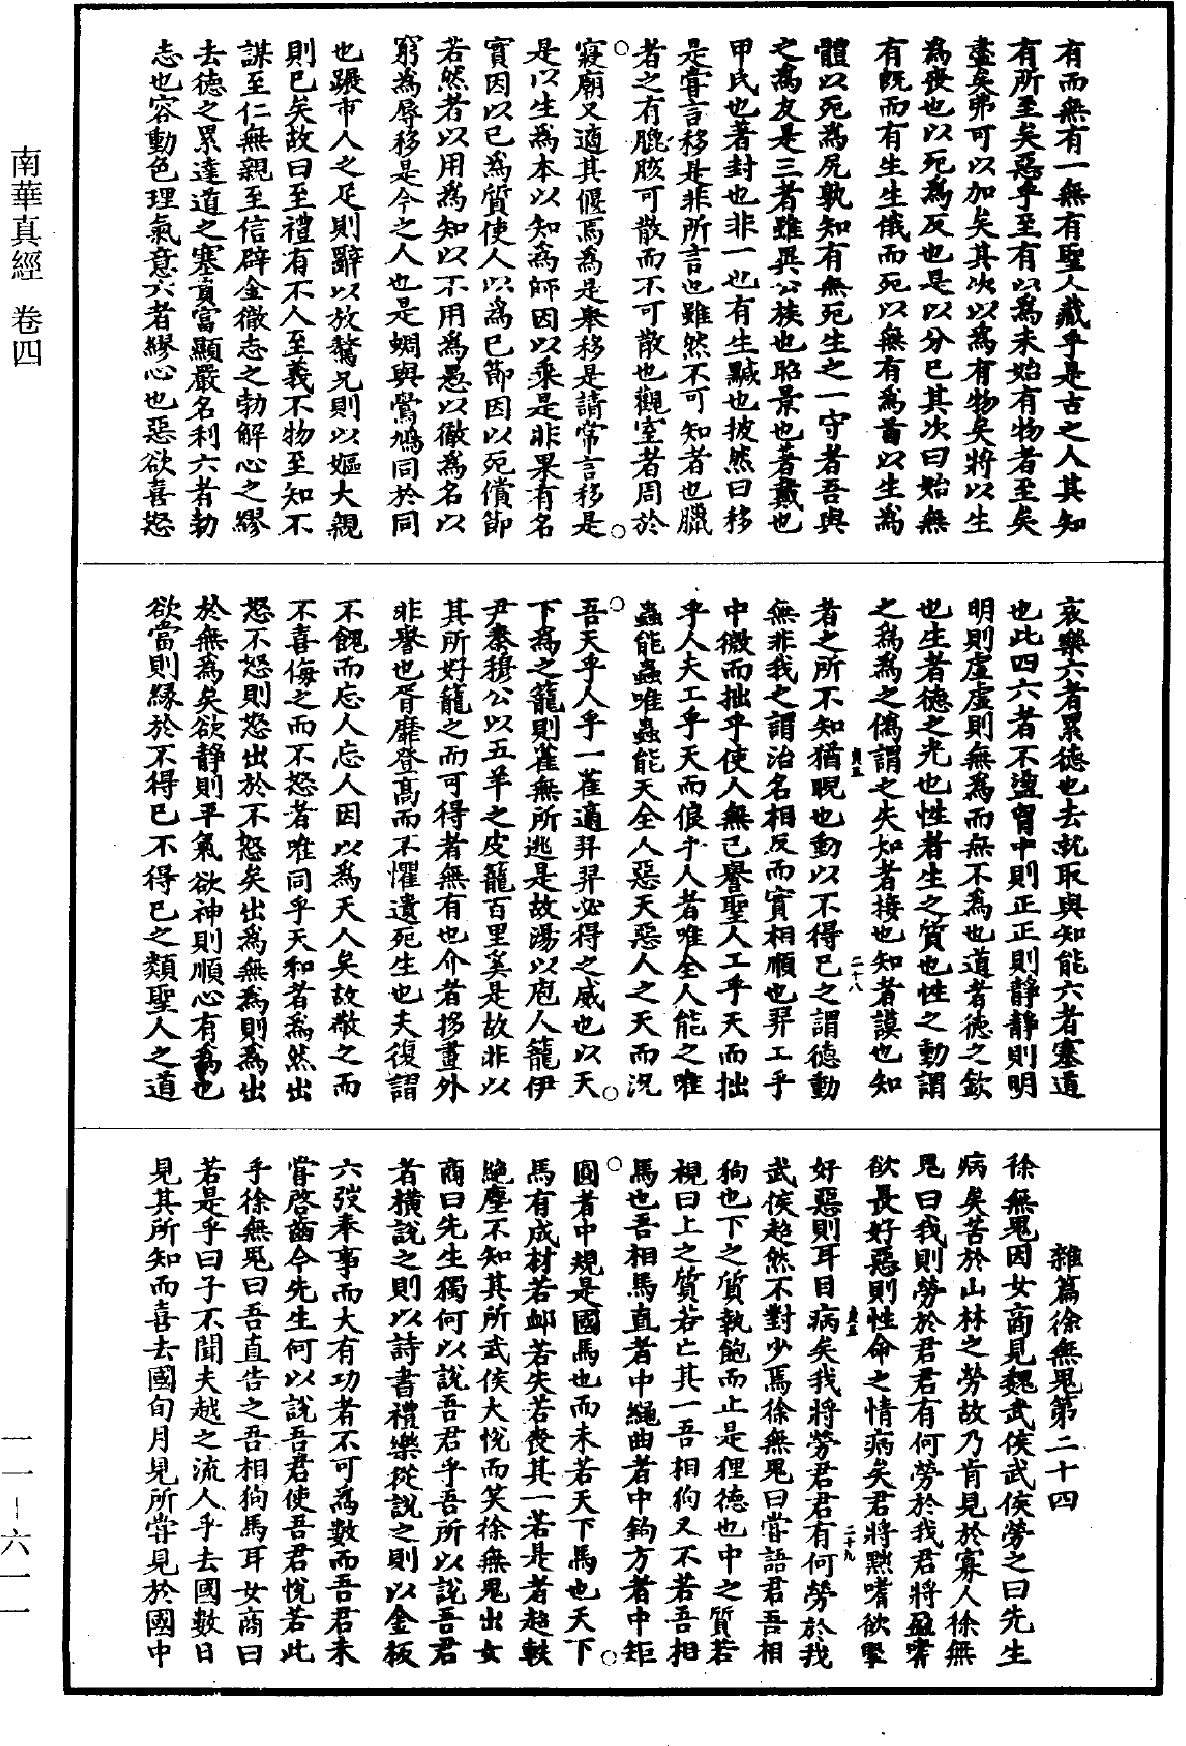 有而無有一無有聖人藏乎是古之人其知
有所至矣惡乎至有以為未始有物者至矣
盡矣弗可以加矣其次以為有物矣將以生
為喪也以死為反也是以分已其次曰始無
有既而有生生俄而死以無有為首以生為
體以死為尻孰知有無死生之一守者吾與
之為友是三者雖異公族也昭景也著戴也
甲氏也著封也非一也有生黬也披然曰移
是嘗言移是非所言也雖然不可知者也臘
者之有膍胲可散而不可散也觀室者周於
寢廟又適其偃焉為是舉移是請常言移是
是以生為本以知為師因以乘是非果有名
實因以己為質使人以為己節因以死償節
若然者以用為知以不用為愚以徹為名以
窮為辱移是今之人也是蜩與鷽鳩同於同
也蹍市人之足則辭以放驁兄則以嫗大親
則已矣故曰至禮有不人至義不物至知不
謀至仁無親至信辟金徹志之勃解心之繆
去德之累達道之塞貴富顯嚴名利六者勃
志也容動色理氣意六者繆心也惡欲喜怒
哀樂六者累德也去就取與知能六者塞道
也此四六者不盪胷中則正正則靜靜則明
明則虛虛則無為而無不為也道者德之欽
也生者德之光也性者生之質也性之動謂
之為為之偽謂之失知者接也知者謨也知
者之所不知猶睨也動以不得已之謂德動
貞五 二十八
無非我之謂治名相反而實相順也羿工乎
中微而拙乎使人無己譽聖人工乎天而拙
乎人夫工乎天而俍乎人者唯全人能之唯
蟲能蟲唯蟲能天全人惡天惡人之天而況
吾天乎人乎一雀適羿羿必得之威也以天
下為之籠則雀無所逃是故湯以庖人籠伊
尹秦穆公以五羊之皮籠百里奚是故非以
其所好籠之而可得者無有也介者拸畫外
非譽也胥靡登高而不懼遺死生也夫復謂
不餽而忘人忘人因以為天人矣故敬之而
不喜侮之而不怒者唯同乎天和者為然出
怒不怒則怒出於不怒矣出為無為則為出
於無為矣欲靜則平氣欲神則順心有為也
欲當則緣於不得已不得已之類聖人之道
雜篇徐無鬼第二十四
徐無鬼因女商見魏武侯武侯勞之曰先生
病矣苦於山林之勞故乃肯見於寡人徐無
鬼曰我則勞於君君有何勞於我君將盈嗜
欲長好惡則性命之情病矣君將黜嗜欲掔
好惡則耳目病矣我將勞君君有何勞於我
貞五 二十九
武侯超然不對少焉徐無鬼曰嘗語君吾相
狗也下之質執飽而止是狸德也中之質若
視曰上之質若亡其一吾相狗又不若吾相
馬也吾相馬直者中繩曲者中鉤方者中矩
圓者中規是國馬也而未若天下馬也天下
馬有成材若卹若失若喪其一若是者超軼
絕塵不知其所武侯大悅而笑徐無鬼出女
商曰先生獨何以說吾君乎吾所以說吾君
者橫說之則以詩書禮樂從說之則以金板
六弢奉事而大有功者不可為數而吾君未
嘗啓齒今先生何以說吾君使吾君悅若此
乎徐無鬼曰吾直告之吾相狗馬耳女商曰
若是乎曰子不聞夫越之流人乎去國數日
見其所知而喜去國旬月見所嘗見於國中
南華真經 卷四
一一—六一一